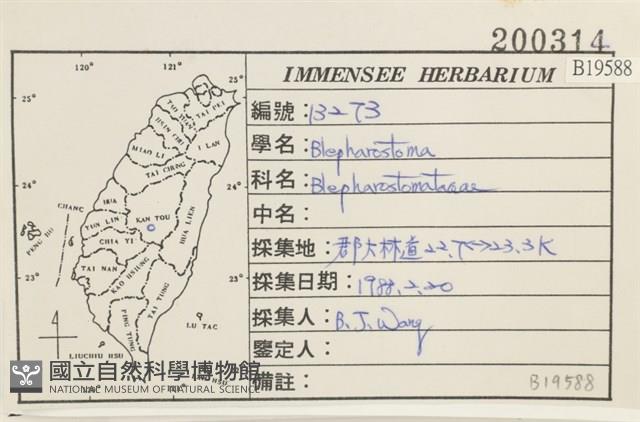 200314
B19588
IMMENSEE HERBARIUM
編號：13273
學名：Blepharostoma
科名：Blepharostomataceae
中名：
採集地：郡大林道22.7↔23.3K
採集日期：1988.2.20
採集人：B.J.Wang
鑒定人：
備註：
B19588
120° 121°
25° 25°
TAI PEI
I LAN
HSIN CHU
MIAO LI
TAI CHUNG
24° 24°
CHANG HUA
KAN TOU
YUN LIN
HUA LIEN
PENG HU
CHIA YI
TAI NAN
KAO HSIUNG
23° 23°
TAI TUNG
PING TUNG
LU TAO
LIUCHIU HSU
國立自然科學博物館
NATIONAL MUSEUM OF NATURAL SCIENCE